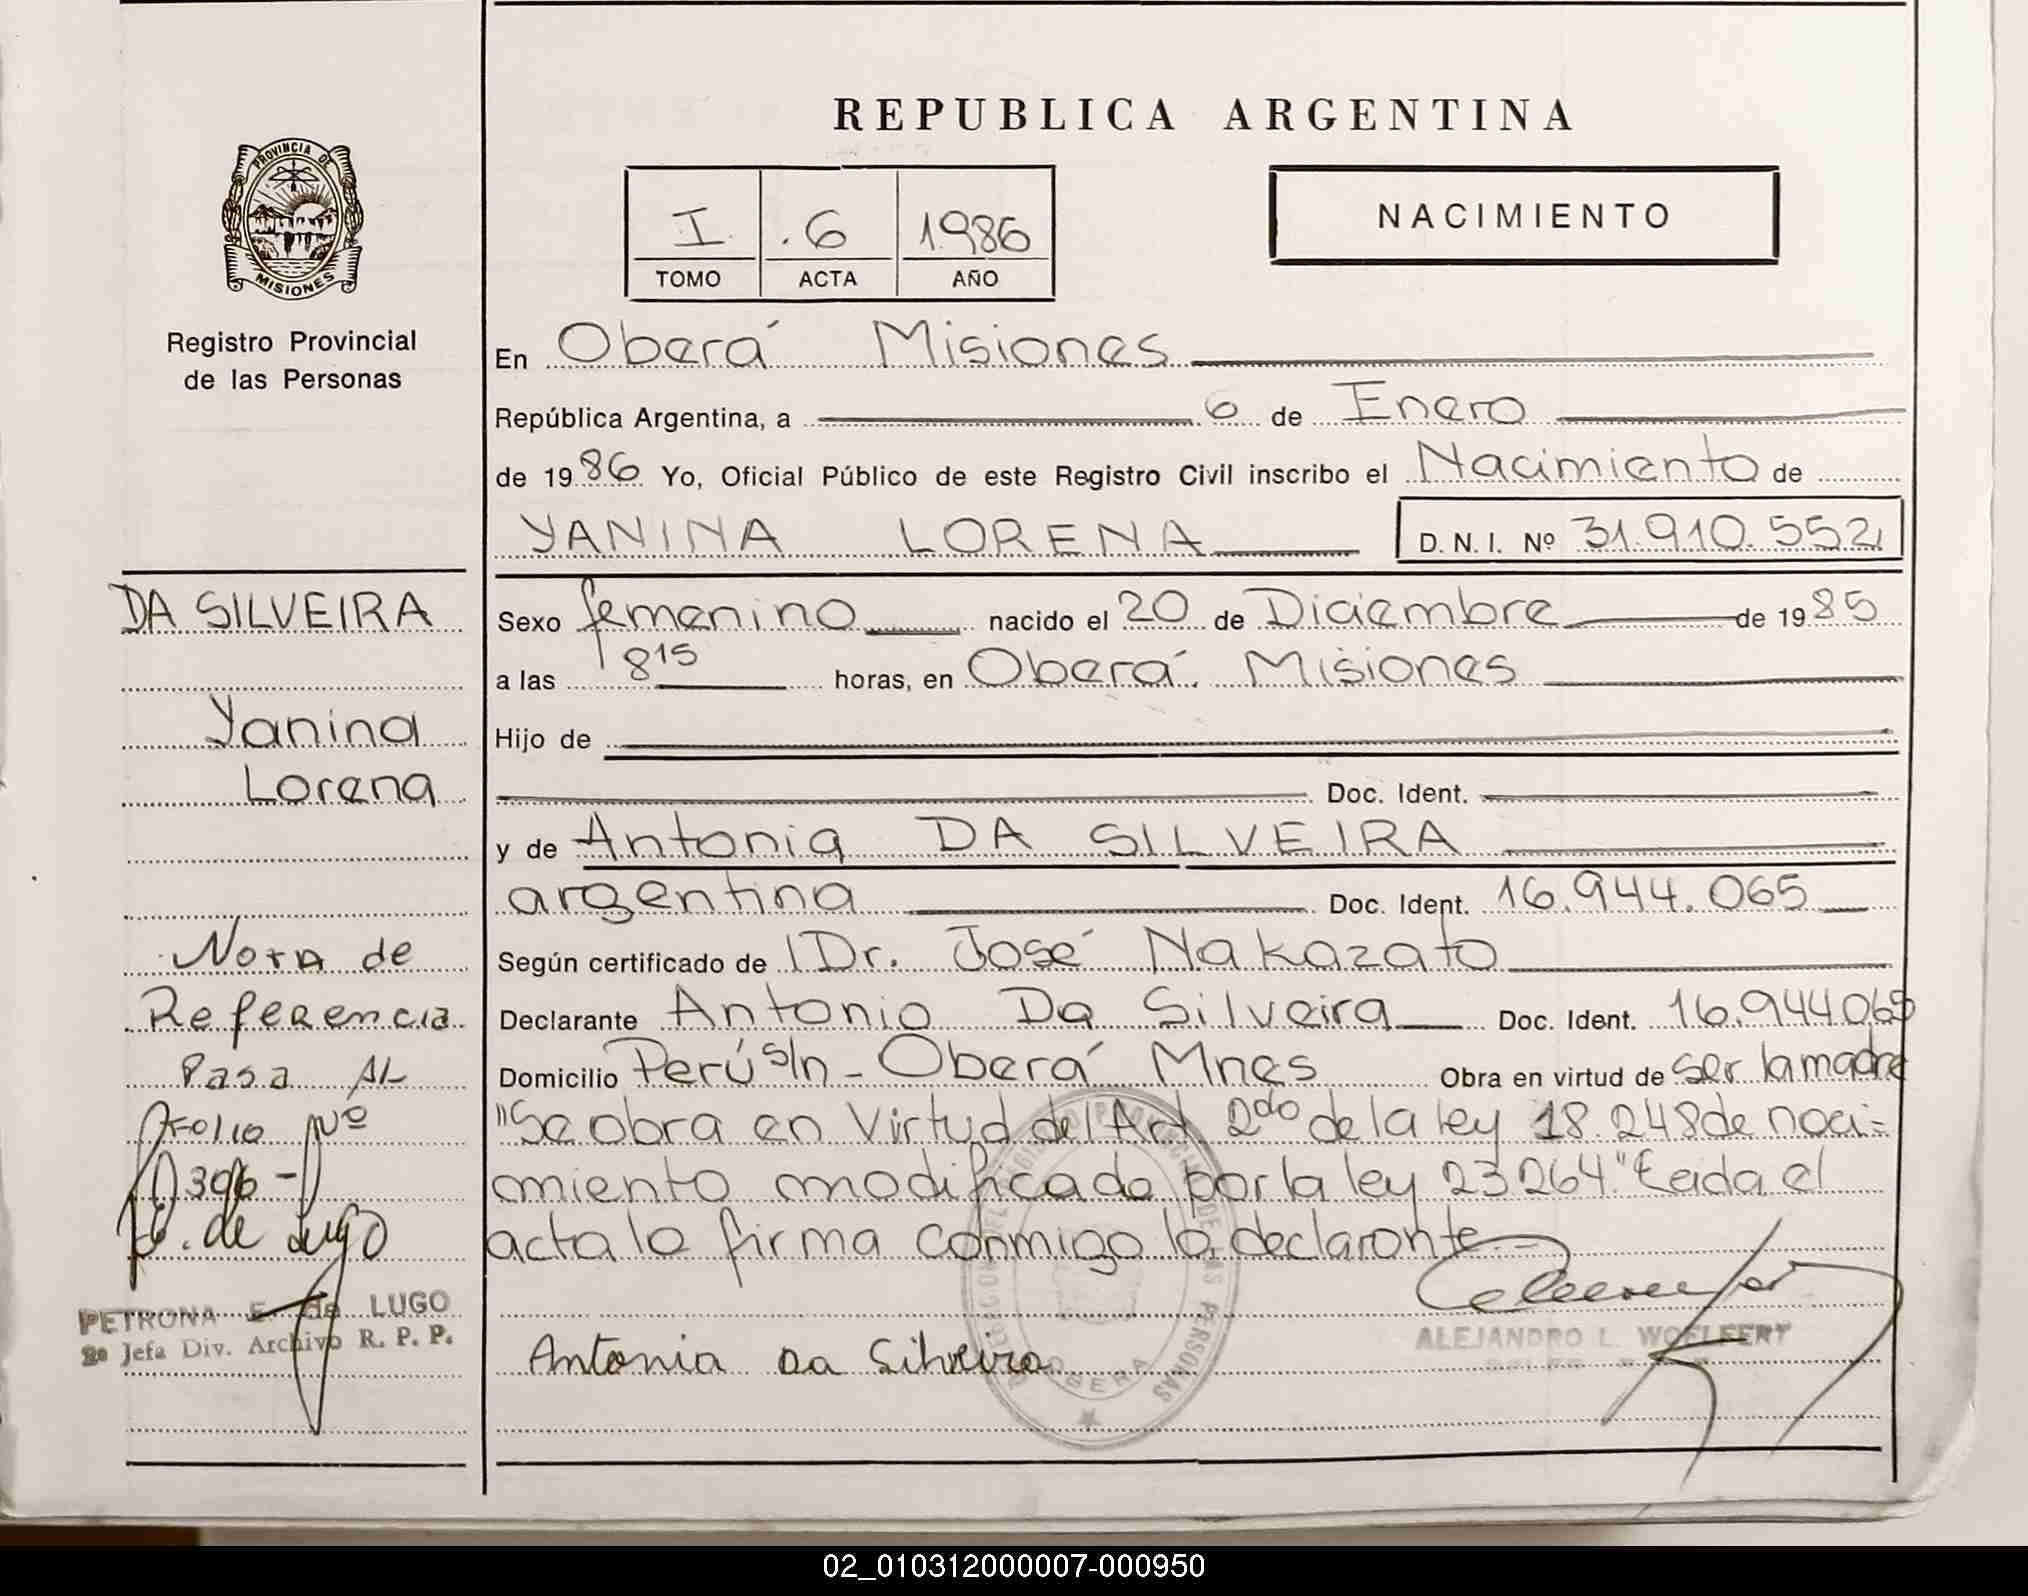 REPUBLICA ARGENTINA
PROVINCIA DE
MISIONES
Registro Provincial
de las Personas
I. .6 1986
TOMO ACTA AÑO
NACIMIENTO
En Oberá Misiones
República Argentina, a 6 de Enero
de 1986 Yo, Oficial Público de este Registro Civil inscribo el Nacimiento de
YANINA LORENA D. N. I. Nº 31.910.552
DA SILVEIRA
Yanina
Lorena
Nota de
Referencia
Pasa AL
Folio Nº
396-
P. de Lugo
PETRONA E. de LUGO
2º Jefa Div. Archivo R. P. P.
Sexo femenino nacido el 20 de Diciembre de 1985
a las 8 15 horas, en Oberá. Misiones
Hijo de
Doc. Ident.
y de Antonia DA SILVEIRA
argentina Doc. Ident. 16.944.065
Según certificado de Dr. José Nakazato
Declarante Antonio Da Silveira Doc. Ident. 16.944.065
Domicilio Perú s/n - Oberá Mnes Obra en virtud de ser la madre
"Se obra en Virtud del Art. 2do de la ley 18.248 de naci-
miento modificado por la ley 23264." Leida el
acta la firma conmigo la declarante-
Antonia Da Silveira
ALEJANDRO L. WOELFERT
DIRECCION DEL REGISTRO PROVINCIAL DE LAS PERSONAS
OBERA
02_010312000007-000950